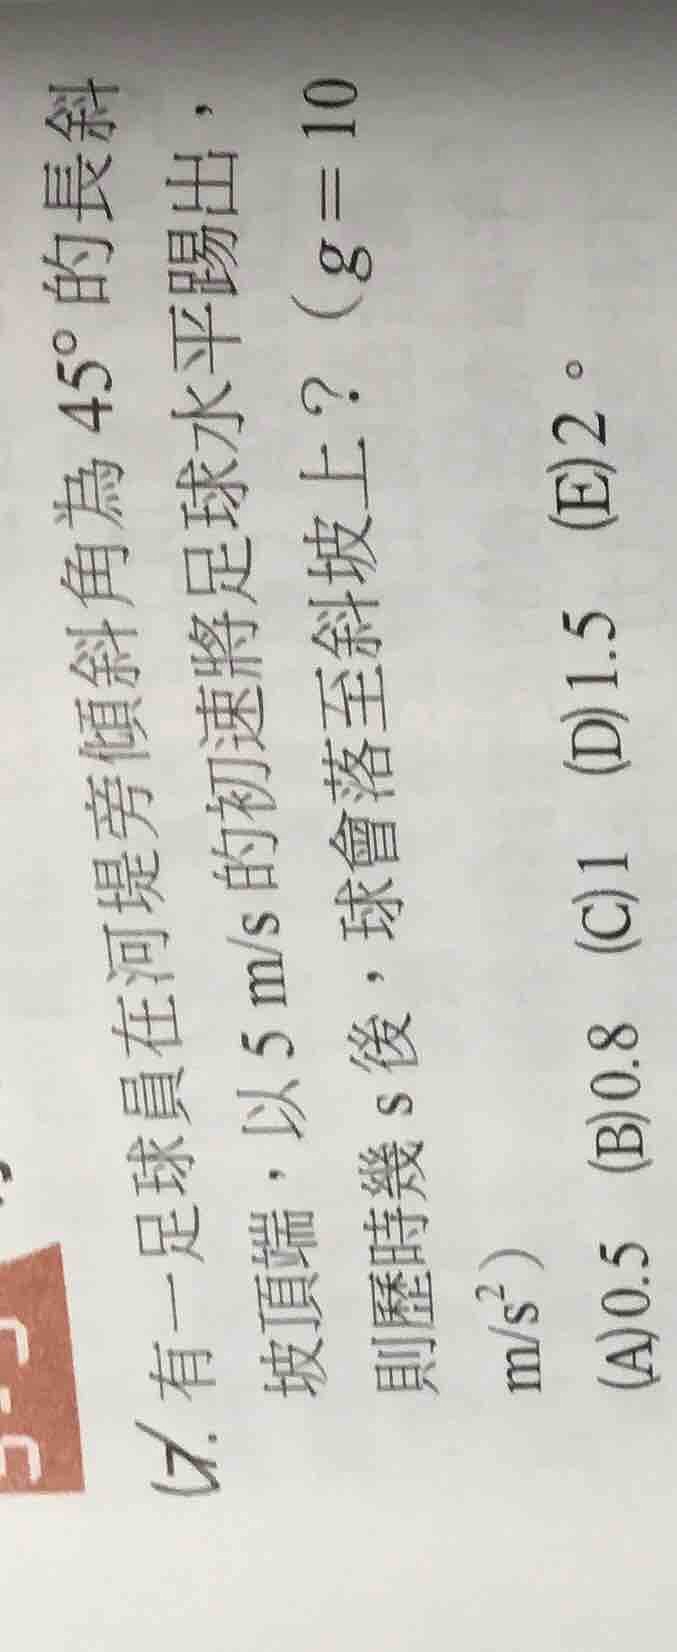 7. 有一足球員在河堤旁傾斜角為 45° 的長斜
坡頂端，以 5 m/s 的初速將足球水平踢出，
則歷時幾 s 後，球會落至斜坡上？（g = 10
m/s²）
(A)0.5 (B)0.8 (C)1 (D)1.5 (E)2。